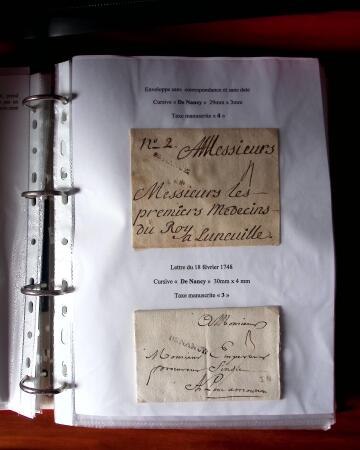 Enveloppe sans correspondance et sans date
Cursive « De Nancy » 29mm x 3mm
Taxe manuscrite « 4 »
No 2. A Messieurs
Messieurs les
premiers Medecins
du Roy
a Luneuille
Lettre du 18 février 1746
Cursive « De Nancy » 30mm x 4 mm
Taxe manuscrite « 3 »
A Monsieur
DE NANCY
Monsieur
procureur Sindic
A